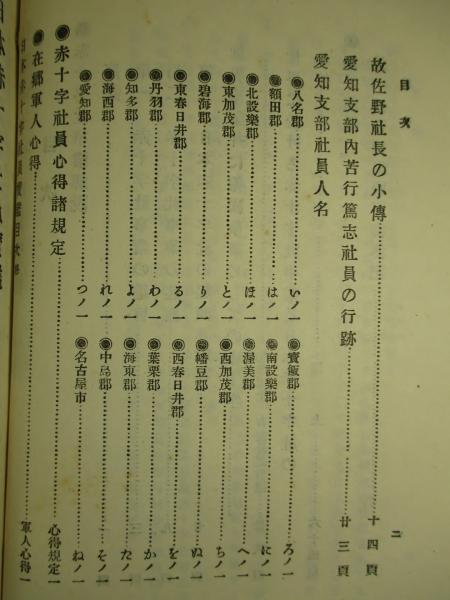 目次
二
故佐野社長の小傳……十四頁
愛知支部內苦行篤志社員の行跡……廿三頁
愛知支部社員人名
◉八名郡……いノ一
◉寶飯郡……ろノ一
◉額田郡……はノ一
◉南設樂郡……にノ一
◉北設樂郡……ほノ一
◉渥美郡……へノ一
◉東加茂郡……とノ一
◉西加茂郡……ちノ一
◉碧海郡……りノ一
◉幡豆郡……ぬノ一
◉東春日井郡……るノ一
◉西春日井郡……をノ一
◉丹羽郡……わノ一
◉葉栗郡……かノ一
◉知多郡……よノ一
◉海東郡……たノ一
◉海西郡……れノ一
◉中島郡……そノ一
◉愛知郡……つノ一
◉名古屋市……ねノ一
◉赤十字社員心得諸規定……心得規定一
◉在鄉軍人心得……軍人心得一
日本赤十字社員